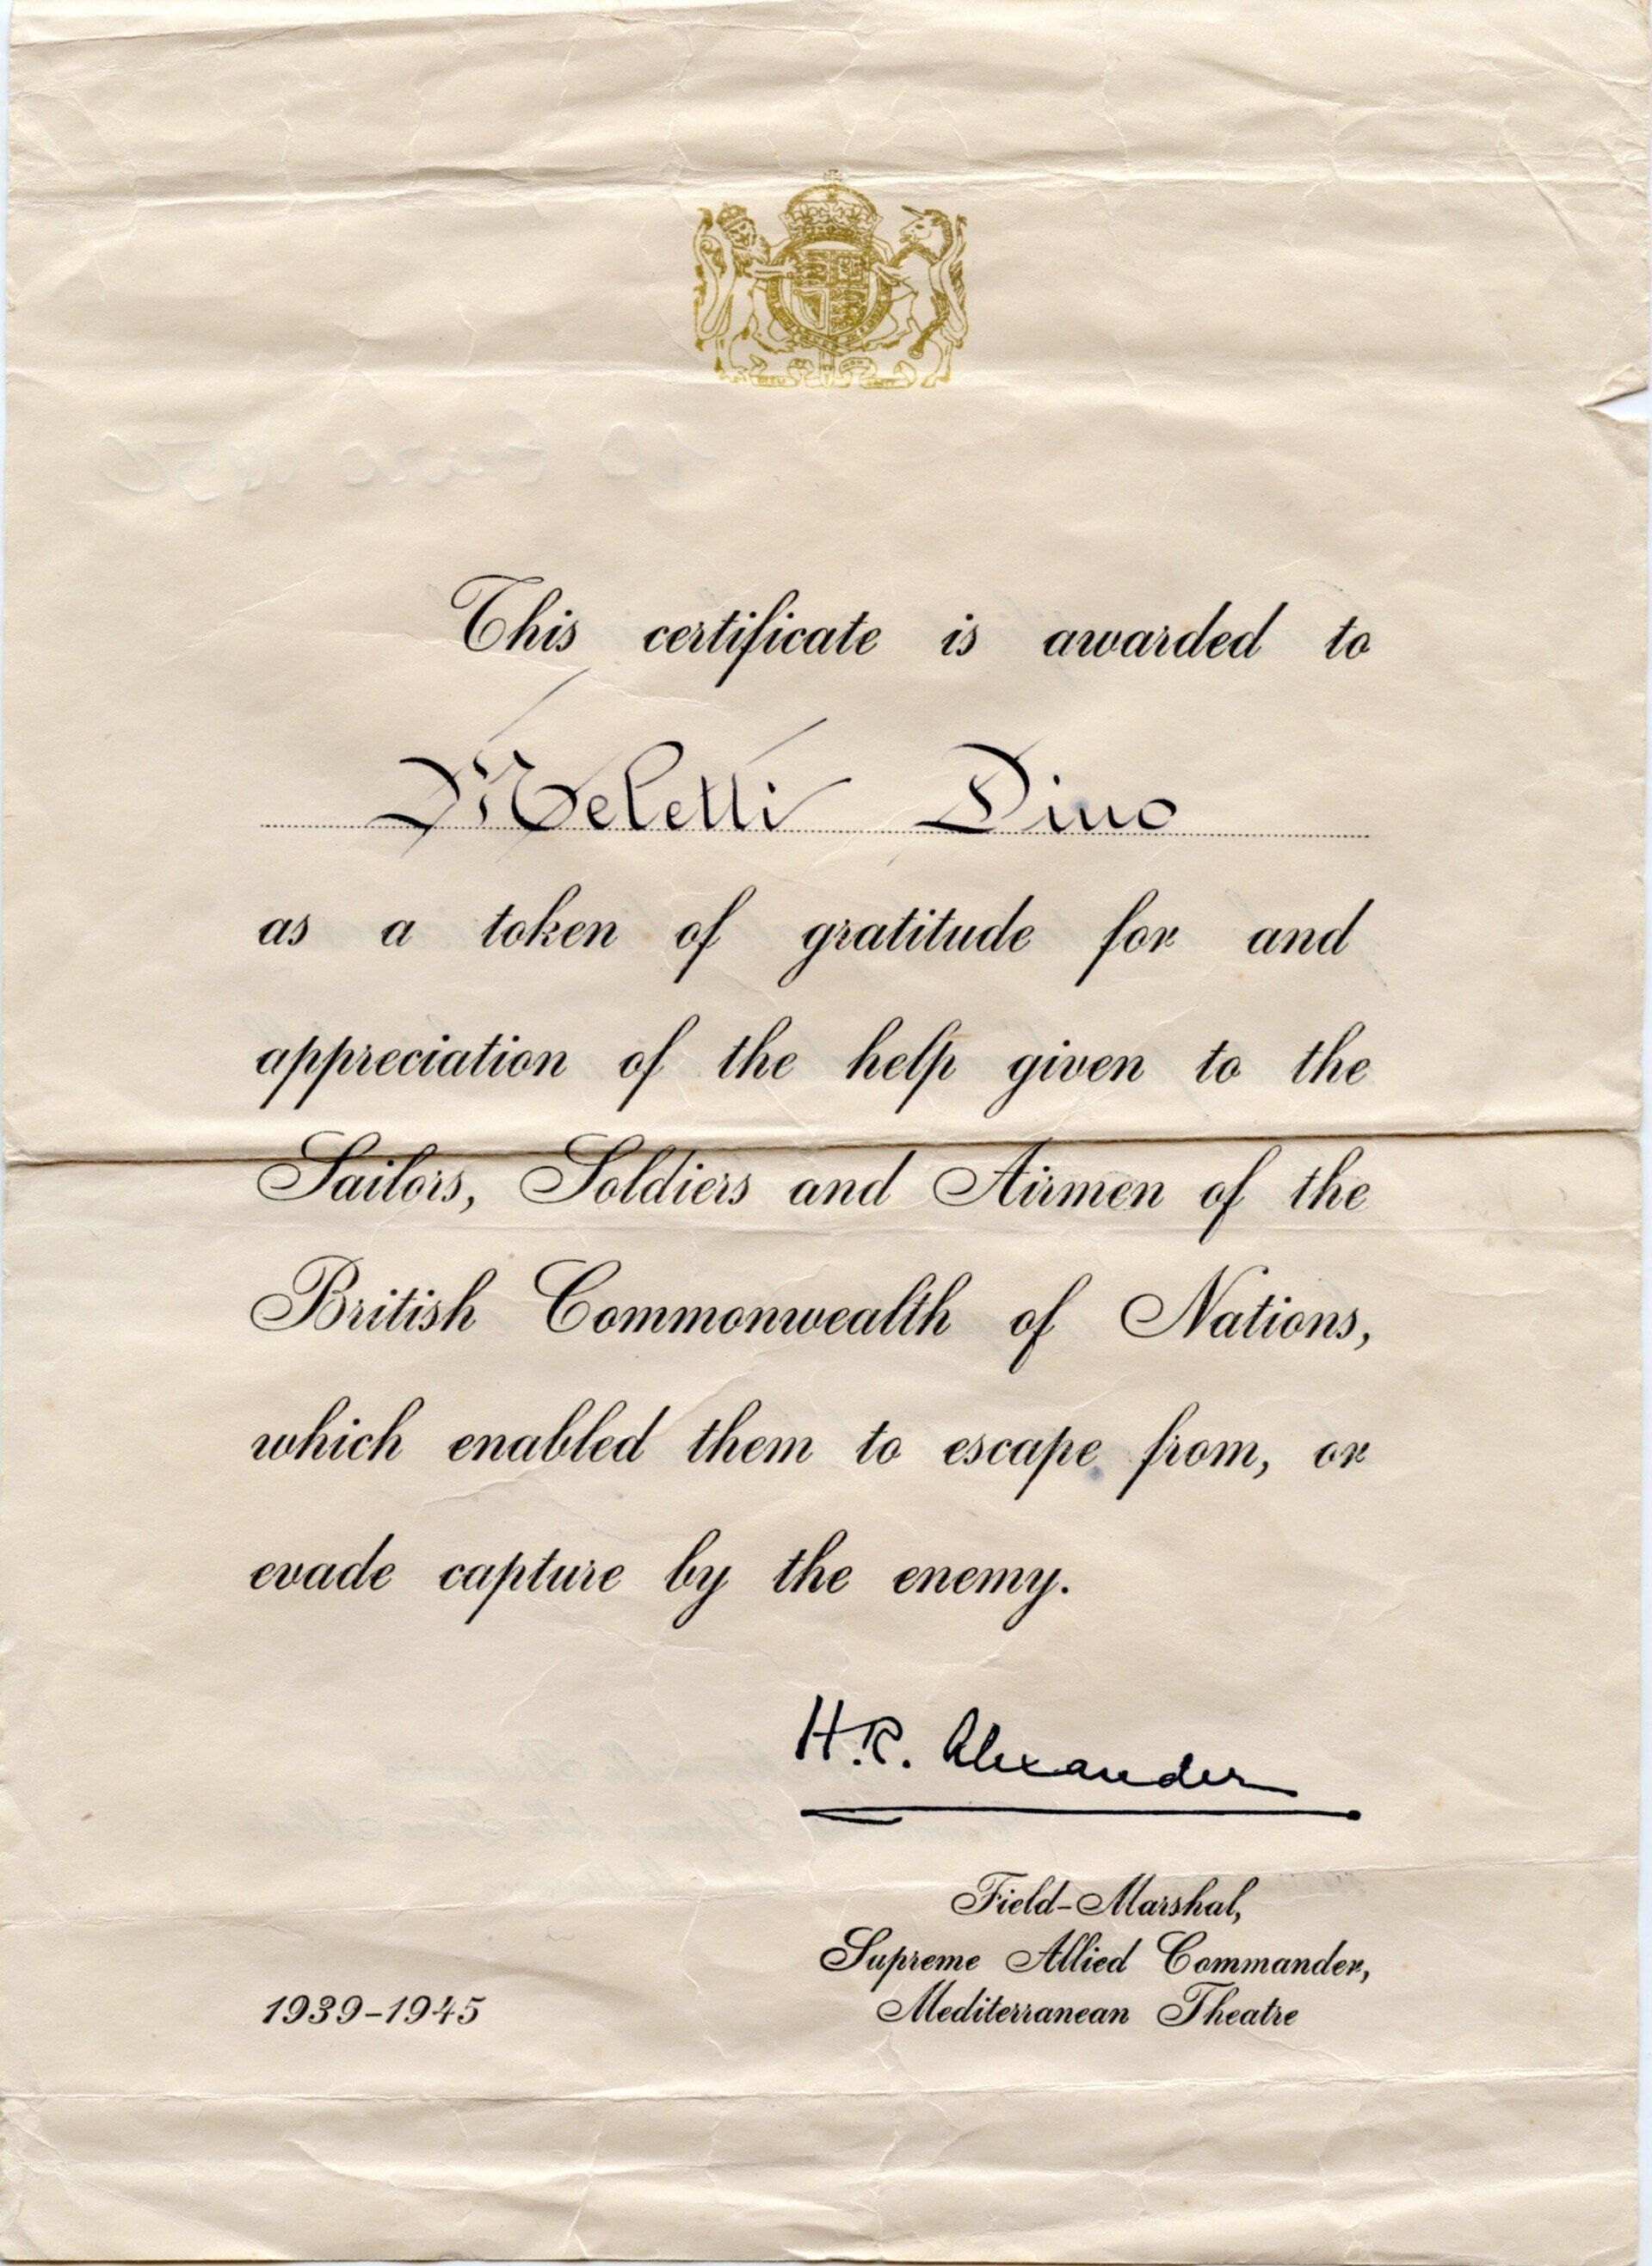 This certificate is awarded to
Meletti Dino
as a token of gratitude for and
appreciation of the help given to the
Sailors, Soldiers and Airmen of the
British Commonwealth of Nations,
which enabled them to escape from, or
evade capture by the enemy.
H.R. Alexander
Field-Marshal,
Supreme Allied Commander,
Mediterranean Theatre
1939-1945